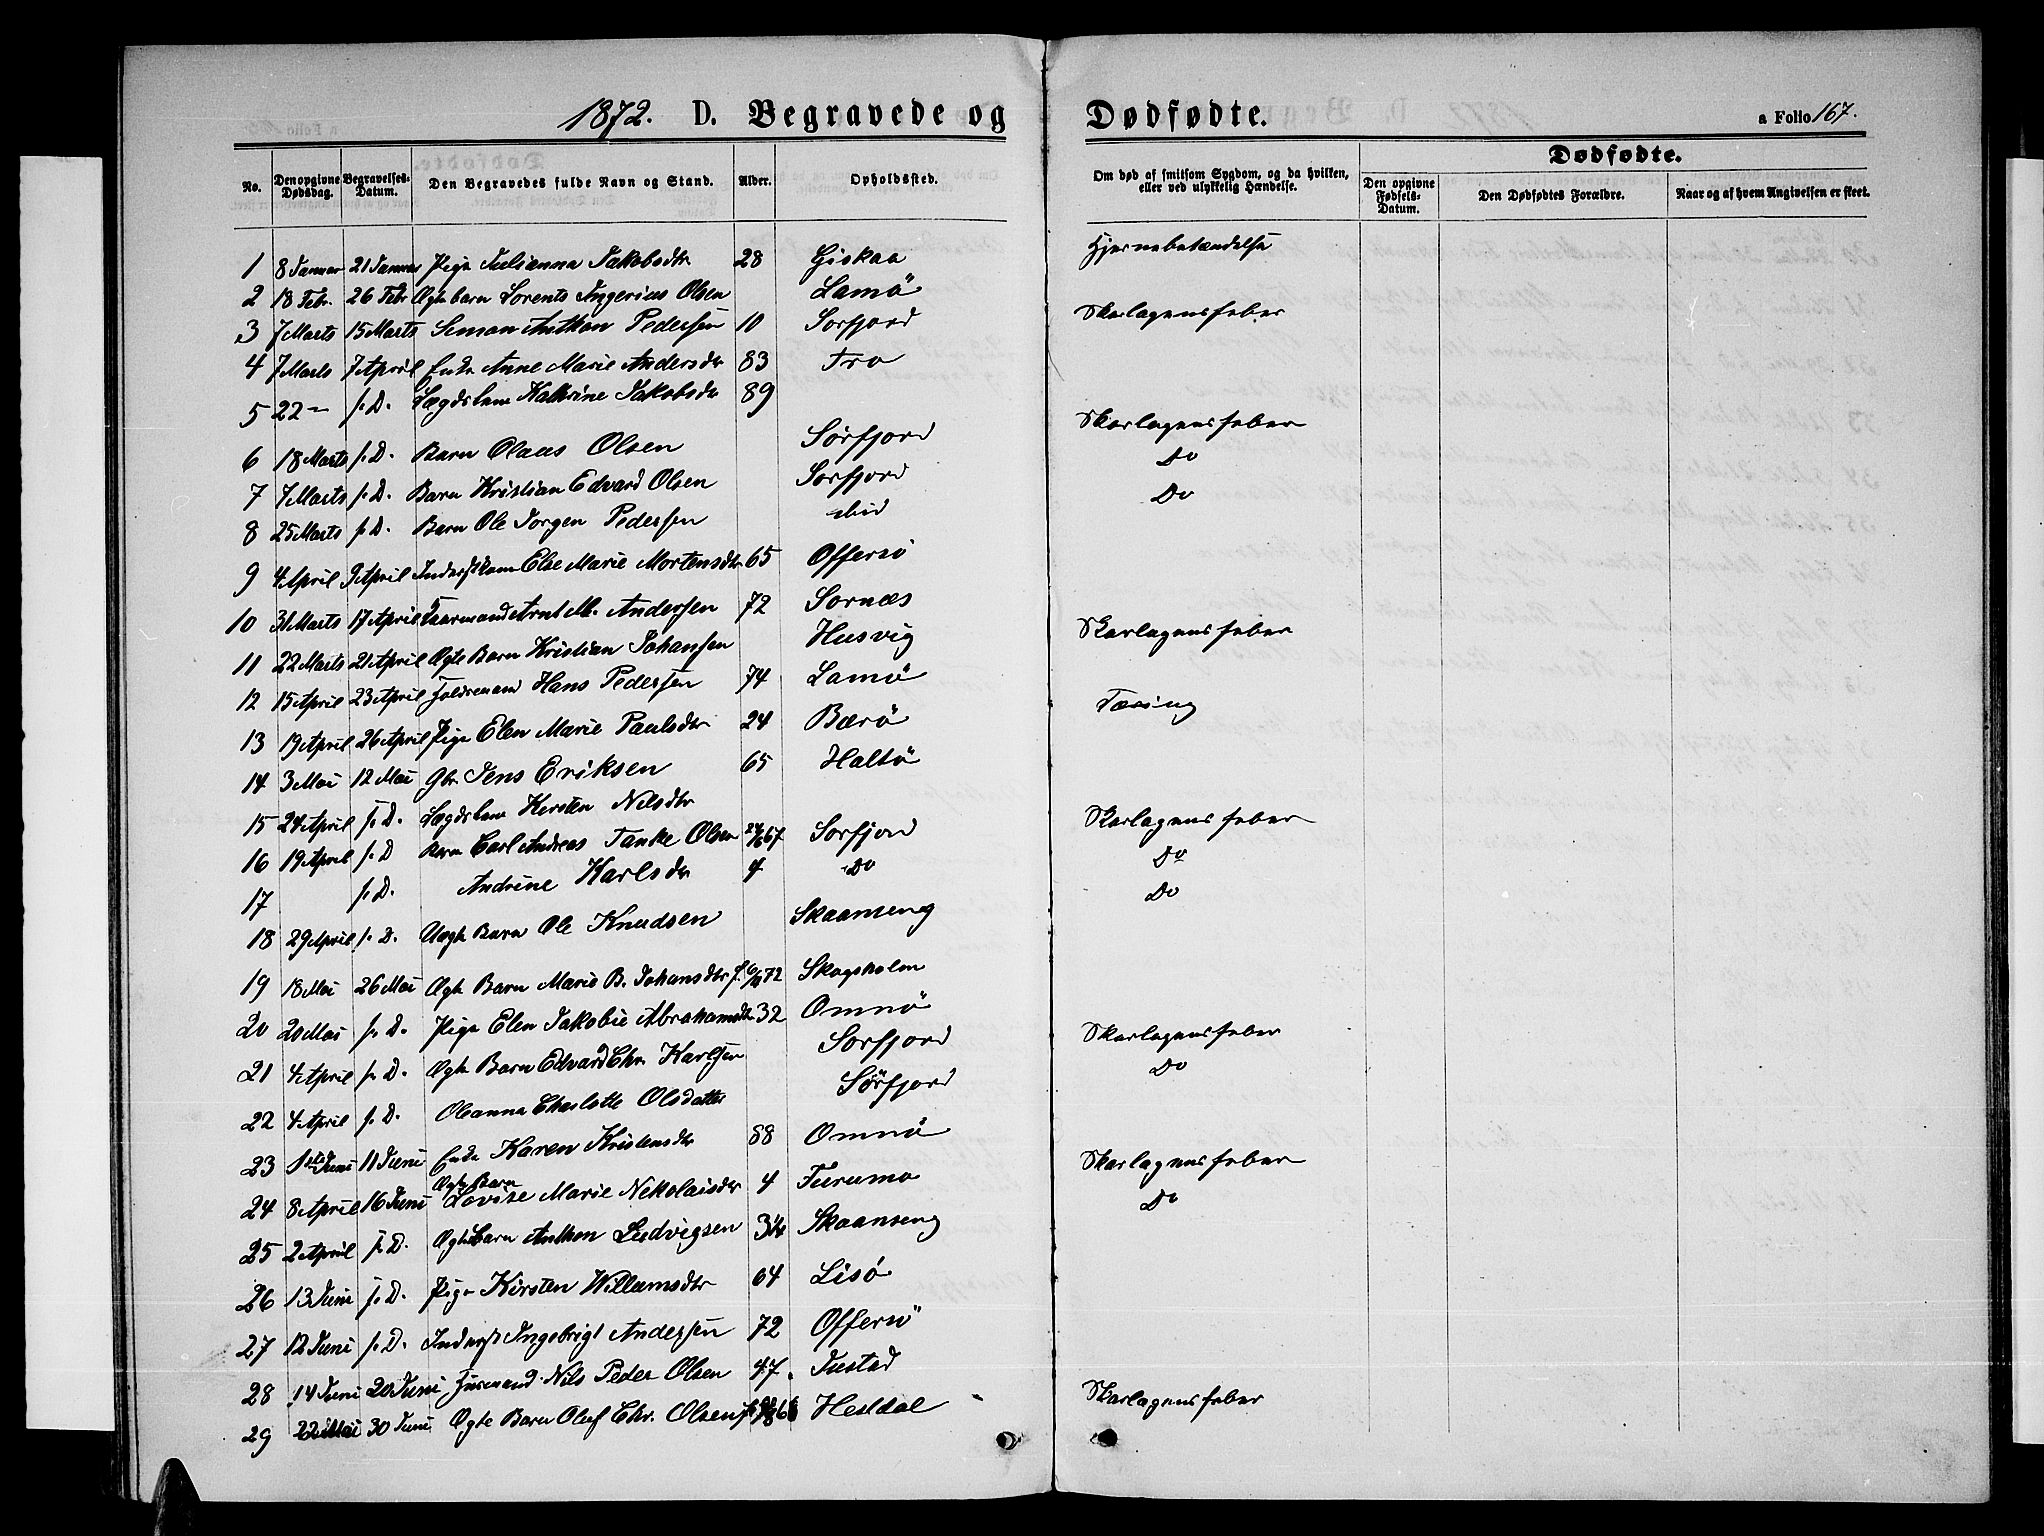 1872. D. Begravede og Dødfødte. a Folio 167.
No. Den opgivne Dødsdag. Begravelses-Datum. Den Begravedes fulde Navn og Stand. Alder. Opholdssted. Om død af smitsom Sygdom, og da hvilken, eller ved ulykkelig Hændelse. Dødfødte.
Den opgivne Fødsels-Datum. Den Dødfødtes Forældre. Naar og af hvem Angivelsen er skeet.
1 8 Januar 21 Januar Pige Julianna Jakobsdtr 28 Giskaa Hjernebetændelse
2 18 Febr. 26 Febr Ægte barn Lorents Ingerius Olsen Lamö
3 7 Marts 15 Marts Simon Anthon Pedersen 10 Sorfjord Skarlagensfeber
4 7 Marts 7 April Enke Anne Marie Andersdr 83 Tro
5 22 — s. D. Lægdslem Kathrine Jakobsdr 89
6 18 Marts s. D. Barn Olaus Olsen Sörfjord Skarlagensfeber
7 7 Marts s. D. Barn Kristian Edvard Olsen Sorfjord Do
8 25 Marts s. D. Barn Ole Jorgen Pedersen ibid Do
9 4 April 9 April Inderstkone Else Marie Mortensdtr 65 Offersö
10 31 Marts 17 April Kaarmand Arnt M. Andersen 72 Sornæs
11 22 Marts 21 April Ægte Barn Kristian Johansen Husvig Skarlagensfeber
12 15 April 23 April Foldremand Hans Pedersen 74 Lamö
13 19 April 26 April Pige Elen Marie Paulsdtr 24 Bærö Tæring
14 3 Mai 12 Mai Gbr. Jens Eriksen 65 Haltö
15 24 April s. D. Lægdslem Kersten Nilsdtr
16 19 April s. D Barn Carl Andreas Tanke Olsen 24/6 67 Sorfjord Skarlagensfeber
17 s. D. Andrine Karlsdr 4 Do Do
18 29 April s. D. Uægte Barn Ole Knudsen Skaanseng Do
19 18 Mai 26 Mai Ægte Barn Marie B. Johansdtr f. 6/4 72 Skogsholm
20 20 Mai s. D. Pige Elen Jakobie Abrahamsdtr 32 Omnö
21 4 April s. D. Ægte Barn Edvard Chr. Karlsen Sorfjord Skarlagensfeber
22 4 April s. D. Oleanna Charlotte Olsdatter Sörfjord Do
23 1ste Juni 11 Juni Enke Karen Kristensdr 88 Omnö
24 8 April 16 Juni Ægte Barn Lovise Marie Nekolaisdr 4 Furumo Skarlagensfeber
25 2 April s. D. Ægte barn Anthon Ludvigsen Skaanseng Do
26 13 Juni s. D. Pige Kirsten Willumsdtr 64 Lisö
27 12 Juni s. D. Inderst Ingebrigt Andersen 72 Offersö
28 14 Juni 20 Juni Husmand Nils Peder Olsen 47. Tustad
29 22 Mai 30 Juni Ægte Barn Oluf Chr. Olsen Hestdal Skarlagensfeber